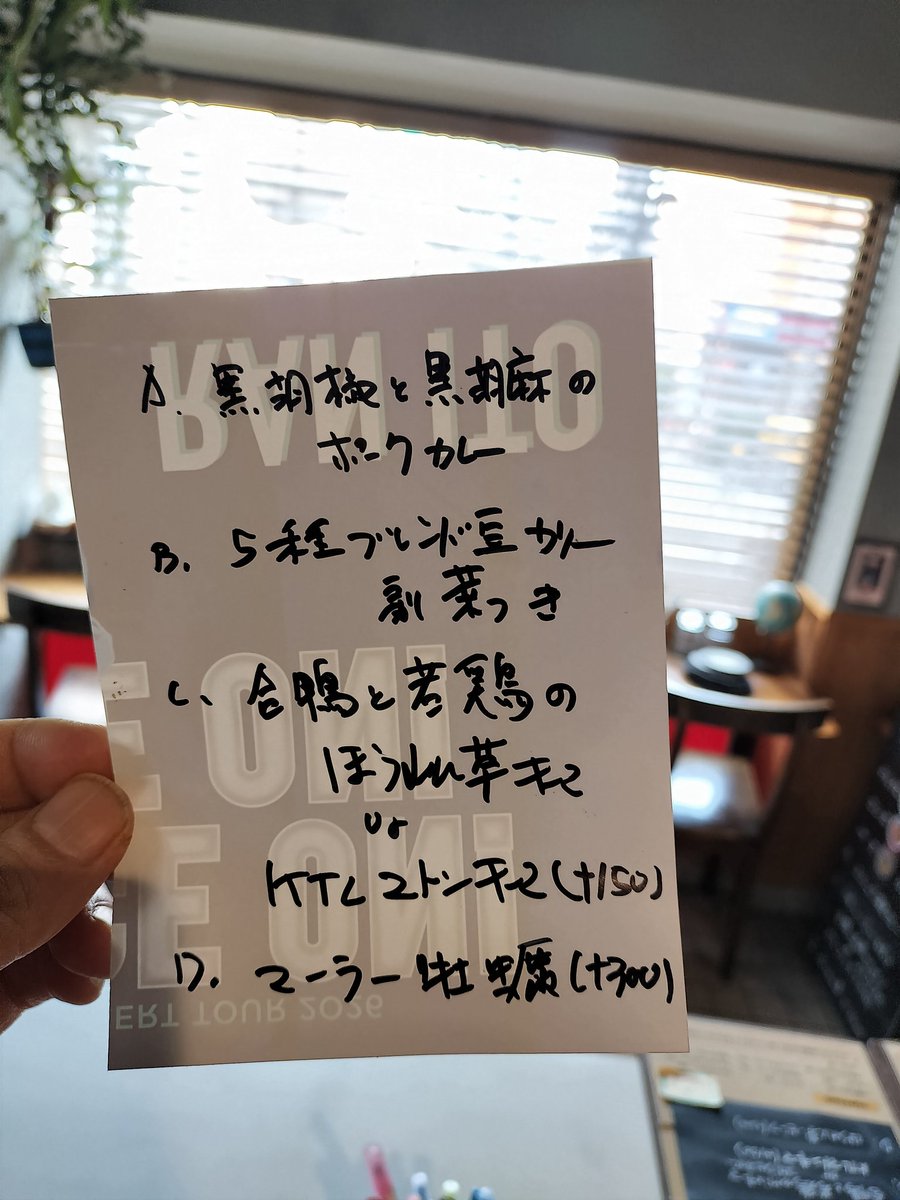 A. 黒胡椒と黒胡麻の
ポークカレー
B. 5種ブレンド豆カレー
副菜つき
C. 合鴨と若鶏の
ほうれん草キマ
or
KTCマトンキーマ(+150)
D. マーラー牡蠣(+300)
RAN ITO
E ONI
CE ONI
ERT TOUR 2026